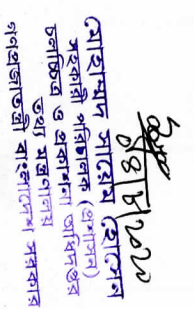 ০৪/৮/২০২০
মোহাম্মদ সায়েম হোসেন
সহকারী পরিচালক (প্রশাসন)
চলচ্চিত্র ও প্রকাশনা অধিদপ্তর
তথ্য মন্ত্রণালয়
গণপ্রজাতন্ত্রী বাংলাদেশ সরকার